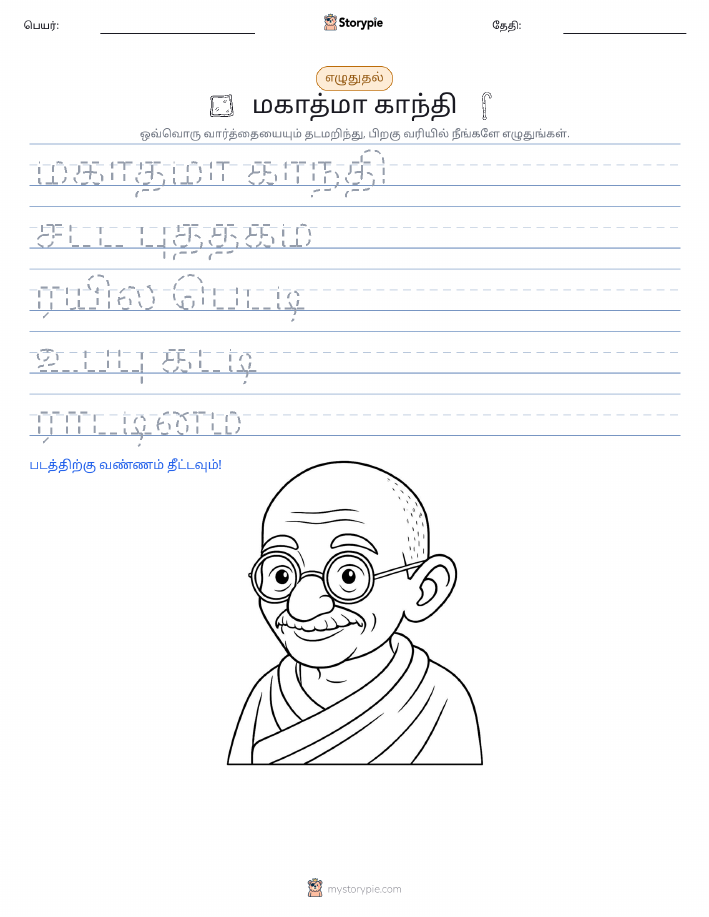 பெயர்:
Storypie
தேதி:
எழுதுதல்
மகாத்மா காந்தி
ஒவ்வொரு வார்த்தையையும் தடமறிந்து, பிறகு வரியில் நீங்களே எழுதுங்கள்.
மகாத்மா காந்தி
சட்ட புத்தகம்
ரயில் பெட்டி
உப்பு கட்டி
ராட்டினம்
படத்திற்கு வண்ணம் தீட்டவும்!
mystorypie.com